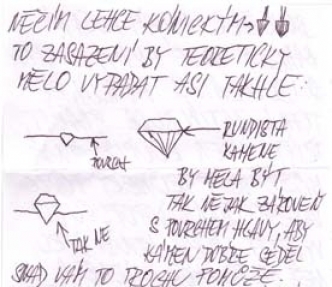 NĚČÍM LEHCE KÓNICKÝM →
TO ZASAZENÍ BY TEORETICKY
MĚLO VYPADAT ASI TAKHLE:
POVRCH
RUNDISTA
KAMENE
BY MĚLA BÝT
TAK NĚJAK ZÁROVEŇ
S POVRCHEM HLAVY, ABY
KÁMEN DOBŘE SEDĚL
TAK NE
SNAD VÁM TO TROCHU POMŮŽE.